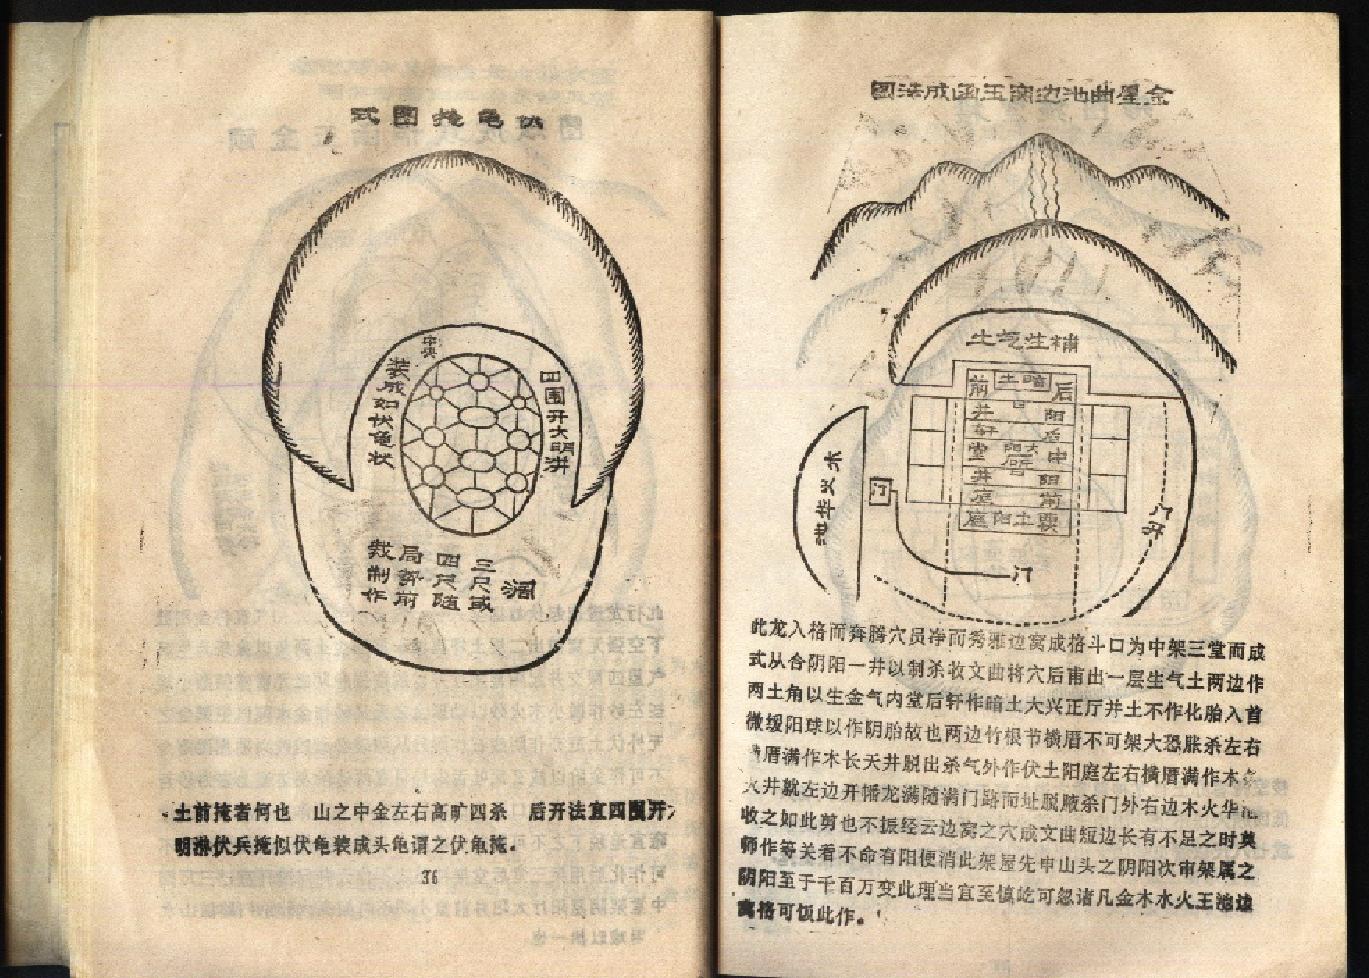 伏龟掩图式
中央
装成如伏龟状
四围开大明洪
阔
三尺或
四尺随
局部前
裁制作
土前掩者何也 山之中金左右高旷四杀 后开法宜四围开
明洪伏兵掩似伏龟装成头龟谓之伏龟掩。
36
金星曲池边窝王函成法图
补生气生
后
暗土
前
阳
井
后
轩
中
大阳厅
堂
阳
井
前
庭
门
门
此龙入格而奔腾穴员净而秀雅边窝成格斗口为中架三堂而成
式从合阴阳一井以制杀收文曲将穴后甫出一层生气土两边作
两土角以生金气内堂后轩作暗土大兴正厅井土不作化胎入首
微缓阳球以作阴胎故也两边竹根节横厝不可架大恐胀杀左右
厝满作木长天井脱出杀气外作伏土阳庭左右横厝满作木
火井就左边开幡龙满随满门路而址脱腋杀门外右边木火华
收之如此剪也不振经云边窝之穴成文曲短边长有不足之时莫
师作等关看不命有阳便消此架屋先申山头之阴阳次审架属之
阴阳至于千百万变此理当宜至慎屹可忽诸凡金木水火王池边
窝格可饭此作。